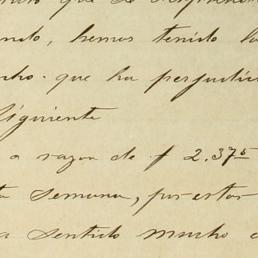 que se
ndo, hemos tenido
que ha perjudic
siguiente
a razon de f 2.375
ta semana, por estar
a sentido mucho